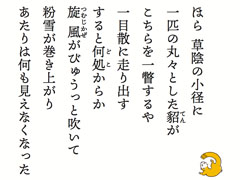 ほら 草陰の小径に
一匹の丸々とした貂が
こちらを一瞥するや
一目散に走り出す
すると何処からか
旋風がぴゅうっと吹いて
粉雪が巻き上がり
あたりは何も見えなくなった
てん
どこ
つむじかぜ